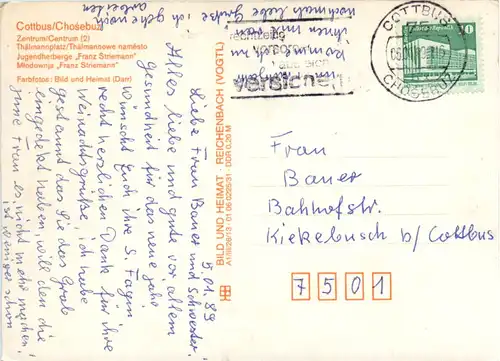 Cottbus/Chośebuz
Zentrum/Centrum (2)
Thälmannplatz/Thälmannowe naměsto
Jugendherberge „Franz Striemann"
Młodownja „Franz Striemann"
Farbfotos: Bild und Heimat (Darr)
5.01.89
Liebe Frau Bauer und Schwester.
Alles liebe und gute vor allem
Gesundheit für das neue Jahr
wünscht Euch ihre S. Fagin
recht herzlichen Dank für ihre
Weinachtsgrüße, ich habe
gestaunt das Sie das Grab
eingedekt haben, will den die
eine Frau es nicht mehr machen,
ist weniger schön
ich gehe noch
arbeiten
nochmals liebe Grüße
BILD UND HEIMAT · REICHENBACH (VOGTL)
A1/III/26/13 · 01 06 0225/31 · DDR 0,20 M
COTTBUS
CHOŚEBUZ
DDR
10
Frau
Bauer
Bahnhofstr.
Kiekebusch b/ Cottbus
7501